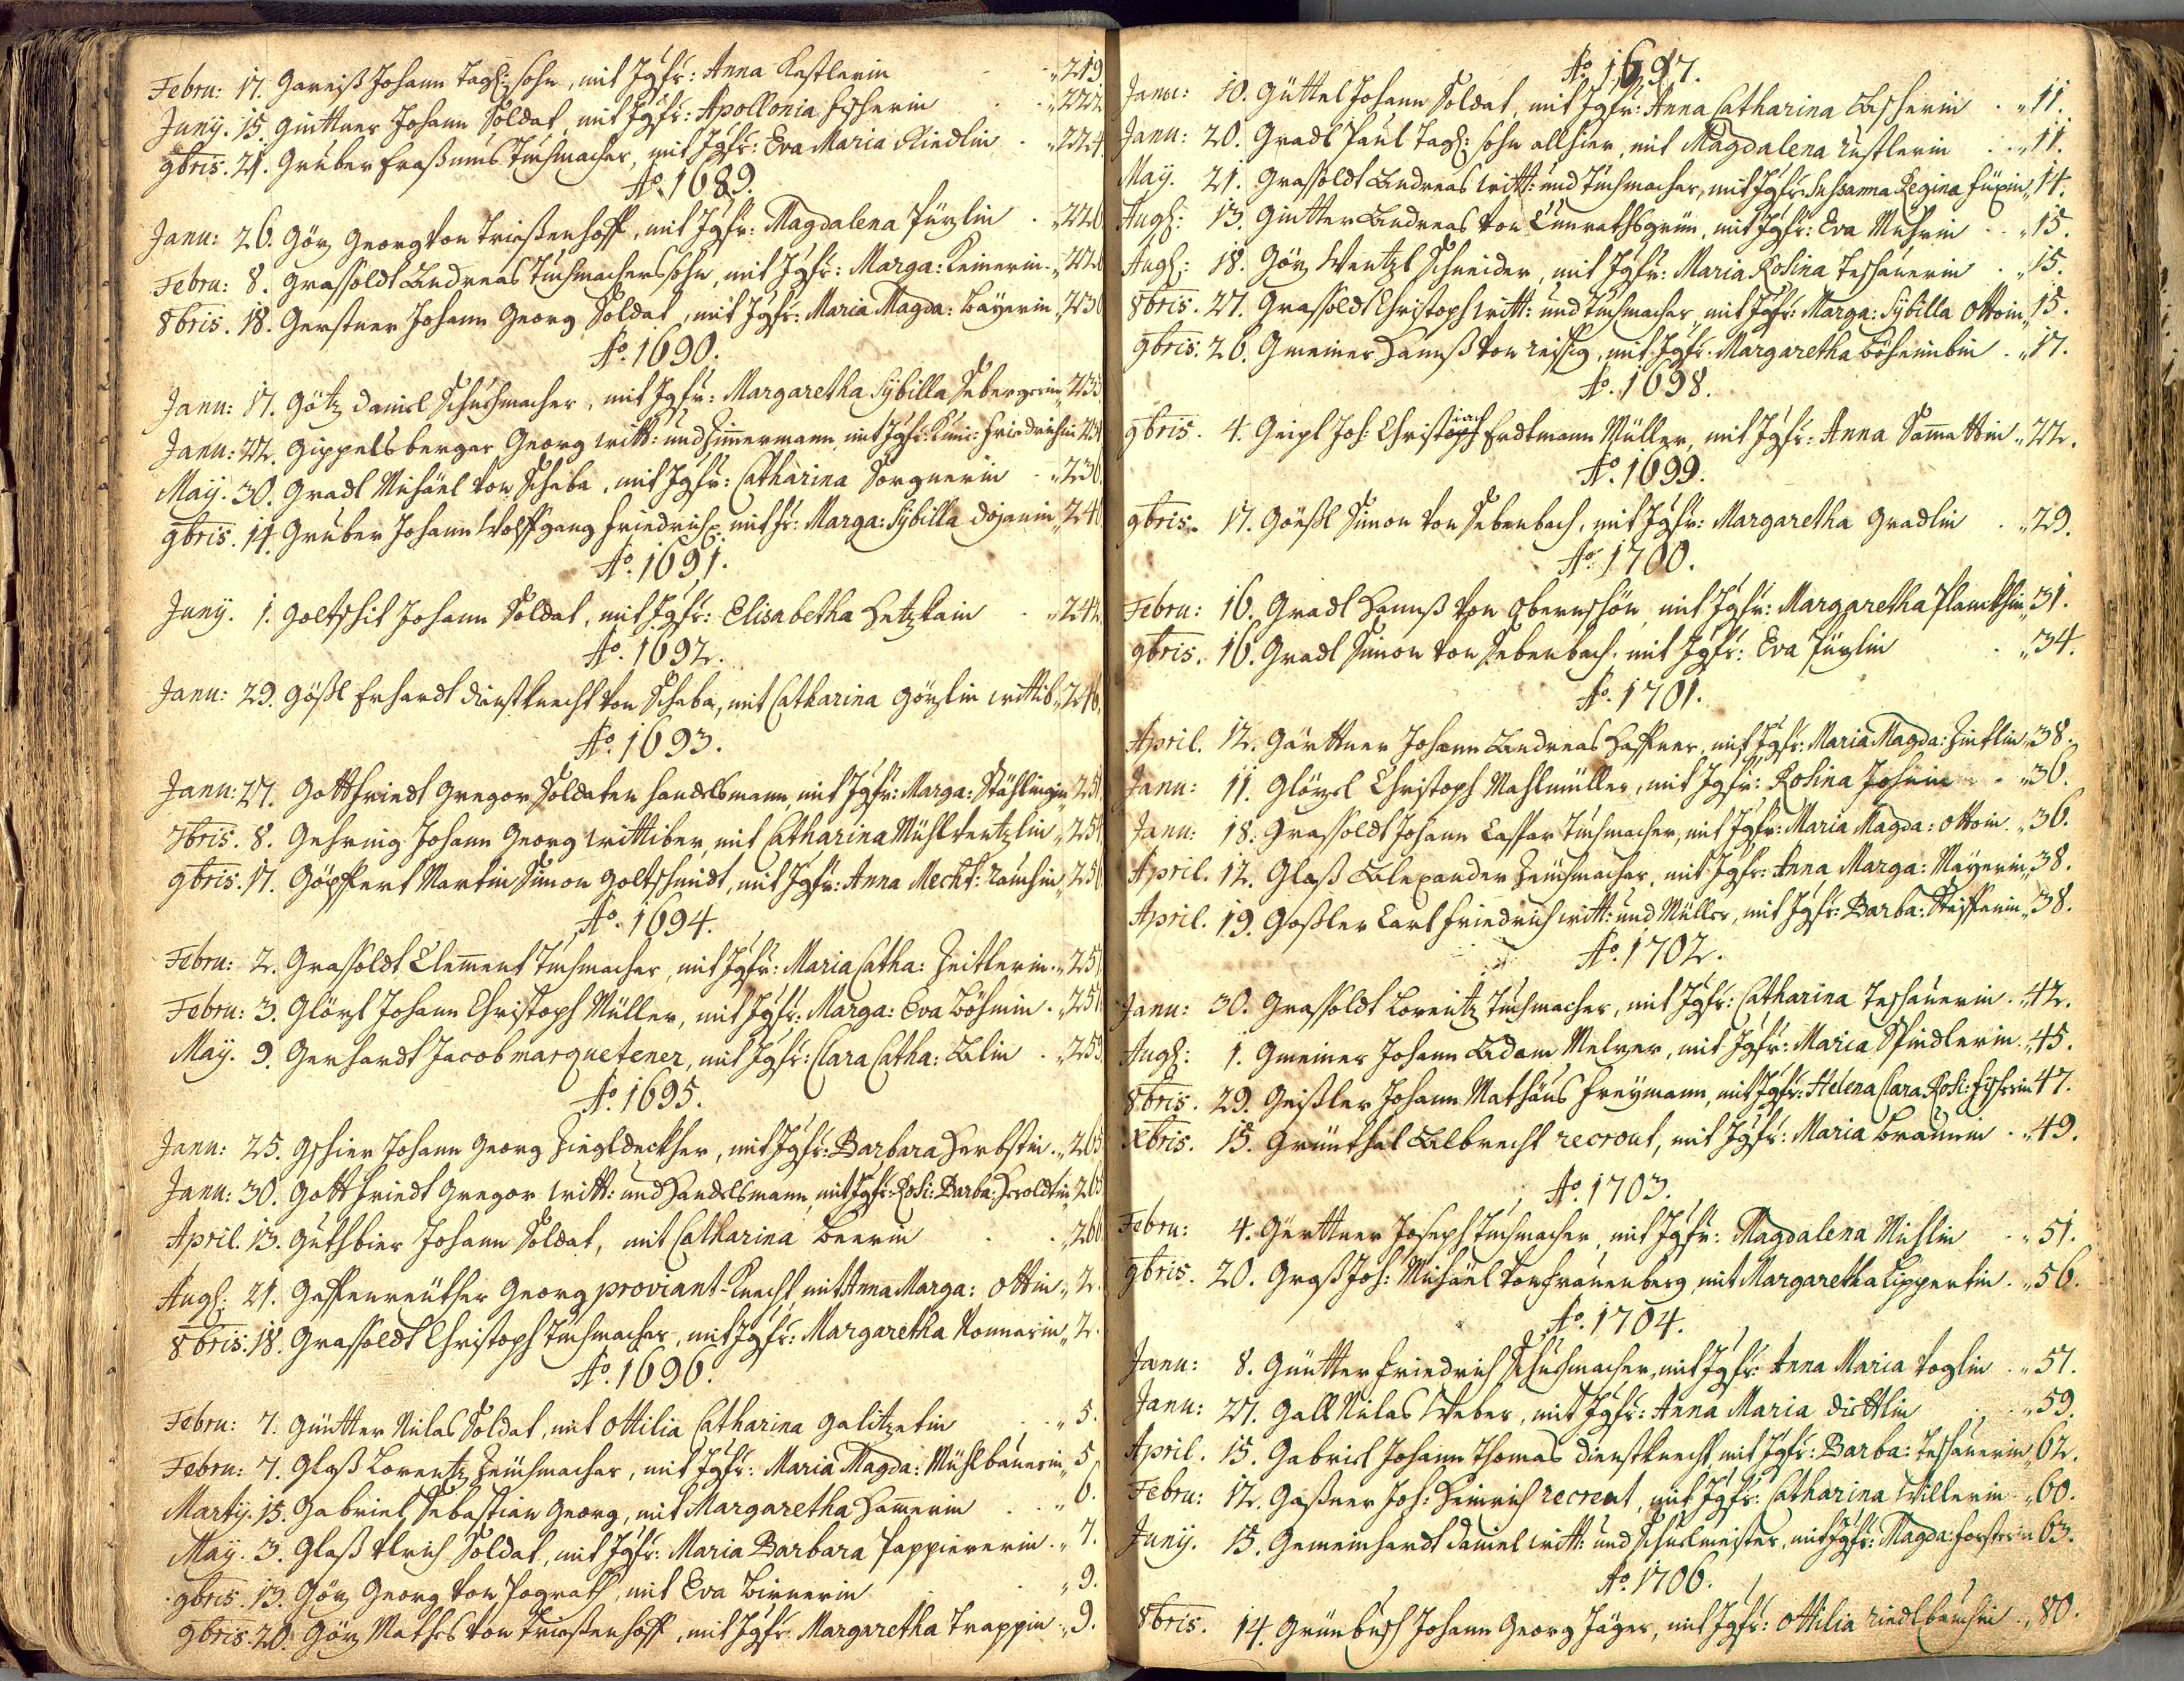 Febru: 17. Gareiß Johann Tagl: sohn, mit Jgfr: Anna Kastlerin „219
Junÿ. 15. Günttner Johann Soldat, mit Jgfr: Apollonia Fischerin „222
9bris. 21. Gruber Eraßmus Tuchmacher, mit Jgfr: Eva Maria Riedlin „224
Ao. 1689.
Janu: 26. Görz Georg von Trießenhoff, mit Jgfr: Magdalena Fürzlin „226
Febru: 8. Graßoldt Andreas Tuchmachers sohn, mit Jgfr: Marga: Reinerin „226
8bris. 18. Gerstner Johann Georg Soldat, mit Jgfr: Maria Magda: Baÿerin „230
Ao. 1690.
Janu: 17. Götz Daniel Schuchmacher, mit Jgfr: Margaretha Sÿbilla „233
Janu: 22. Gippelsberger Georg witt: und Zimmermann, mit Jgfr: Kuni: Friedrichin
Maÿ. 30. Gradl Michäel von Schaba, mit Jgfr: Catharina Sorgnerin „236
9bris. 14. Gruber Johann Wolffgang Friedrich, mit Jgfr: Marga: Sÿbilla „240
Ao. 1691.
Junÿ. 1. Goltschit Johann Soldat, mit Jgfr: Elisabetha Hetzkain „242
Ao. 1692.
Janu: 29. Gößl Erhardt dienstknecht von Schaba, mit Catharina Görzlin wittib „246.
Ao. 1693.
Janu: 27. Gottfriedt Gregor Soldaten handelsmann, mit Jgfr: Marga: Stählingin „251
7bris. 8. Gehring Johann Georg wittiber, mit Catharina Mühlwentzlin „254
9bris. 17. Göpffert Martin Simon Goltschmidt, mit Jgfr: Anna Mecht: Rauchin „256
Ao. 1694.
Febru: 2. Graßoldt Clement Tuchmacher, mit Jgfr: Maria Catha: Zeitlerin „257
Febru: 3. Glörzl Johann Christoph Müller, mit Jgfr: Marga: Eva Böhmin „257
Maÿ. 9. Gerhardt Jacob marquetener, mit Jgfr: Clara Catha: Alin „259
Ao. 1695.
Janu: 25. Gschier Johann Georg Ziegldeckher, mit Jgfr: Barbara Herbstin „265
Janu: 30. Gottfriedt Gregor witt: und Handelsmann, mit Jgfr: Rosi: Barba: Heroldtin „265
April. 13. Guthbier Johann Soldat, mit Catharina Beerin „266
Aug: 21. Geffenreüther Georg proviant-Knecht, mit Anna Marga: Ottin „2.
8bris. 18. Graßoldt Christoph Tuchmacher, mit Jgfr: Margaretha Nonnerin „2.
Ao. 1696.
Febru: 7. Günter Niclas Soldat, mit Ottilia Catharina Galitzetin „5.
Febru: 7. Glaß Lorentz Zeuchmacher, mit Jgfr: Maria Magda: Mühlbauerin „5
Martÿ. 15. Gabriel Sebastian Georg, mit Margaretha Hamerin „6.
Maÿ. 3. Glaß Ulrich Soldat, mit Jgfr: Maria Barbara Pappiererin „7.
9bris. 13. Görz Georg von Pograth, mit Eva Birnerin „9.
9bris. 20. Görz Mathes von Trießenhoff, mit Jgfr: Margaretha Trappin „9.
Ao. 1697.
Janu: 10. Güttel Johann Soldat, mit Jgfr: Anna Catharina Ascherin „11.
Janu: 20. Gradl Paul Tagl: sohn allhier, mit Magdalena Rustlerin „11.
Maÿ. 21. Graßoldt Andreas witt: und Tuchmacher, mit Jgfr: Susanna Regina Füxin „14.
Aug: 13. Günter Andreas von Cunrathsgrün, mit Jgfr: Eva Muhrin „15.
Aug: 18. Görz Wentzl Schneider, mit Jgfr: Maria Rosina Teschauerin „15.
8bris. 27. Graßoldt Christoph witt: und Tuchmacher, mit Jgfr: Marga: Sÿbilla Ottoin „15.
9bris. 26. Gmeiner Hannß von Reissig, mit Jgfr: Margaretha Böheimbin „17.
Ao. 1698.
9bris. 4. Geipl Joh: Christoph Erdtmann Müller, mit Jgfr: Anna Samettin „22.
Ao. 1699.
9bris. 17. Goeßl Simon von Sebenbach, mit Jgfr: Margaretha Gradlin „29.
Ao. 1700.
Febru: 16. Gradl Hannß von Obernschön, mit Jgfr: Margaretha Planckhin „31.
9bris. 16. Gradl Simon von Sebenbach, mit Jgfr: Eva Fürzlin „34.
Ao. 1701.
April. 12. Gärttner Johann Andreas Haffner, mit Jgfr: Maria Magda: Zintlin „38.
Janu: 11. Glörzel Christoph Mahlmüller, mit Jgfr: Rosina „36.
Janu: 18. Graßoldt Johann Caspar Tuchmacher, mit Jgfr: Maria Magda: Ottoin „36.
April. 12. Glaß Alexander Zeuchmacher, mit Jgfr: Anna Marga: Maÿerin „38.
April. 19. Goßler Carl Friedrich witt: und Müller, mit Jgfr: Barba: Steifferin „38.
Ao. 1702.
Janu: 30. Graßoldt Lorentz Tuchmacher, mit Jgfr: Catharina Teschauerin „42.
Aug: 1. Gmeiner Johann Adam Melzer, mit Jgfr: Maria Spindlerin „45.
8bris. 29. Geißler Johann Mathäus Freÿmann, mit Jgfr: Helena Clara Rosi: Fischerin „47.
Xbris. 15. Grünthal Albrecht recrout, mit Jgfr: Maria Braunin „49.
Ao. 1703.
Febru: 4. Gerttner Joseph Tuchmacher, mit Jgfr: Magdalena Michlin „51.
9bris. 20. Graß Joh: Michäel von Frauenberg, mit Margaretha Lippertin „56.
Ao. 1704.
Janu: 8. Güntter Friedrich Schuchmacher, mit Jgfr: Anna Maria Voglin „57.
Janu: 27. Gall Niclas Weber, mit Jgfr: Anna Maria Dirttlin „59.
April. 15. Gabriel Johann Thomas dienstknecht, mit Jgfr: Barba: Teschauerin „62.
Febru: 12. Gaßner Joh: Heinrich recreut, mit Jgfr: Catharina Willerin „60.
Junÿ. 15. Gemeinhardt Daniel witt: und Schulmeister, mit Jgfr: Magda: Forsterin „63.
Ao. 1706.
8bris. 14. Grünbusch Johann Georg Jäger, mit Jgfr: Ottilia Riedlbauchin „80.